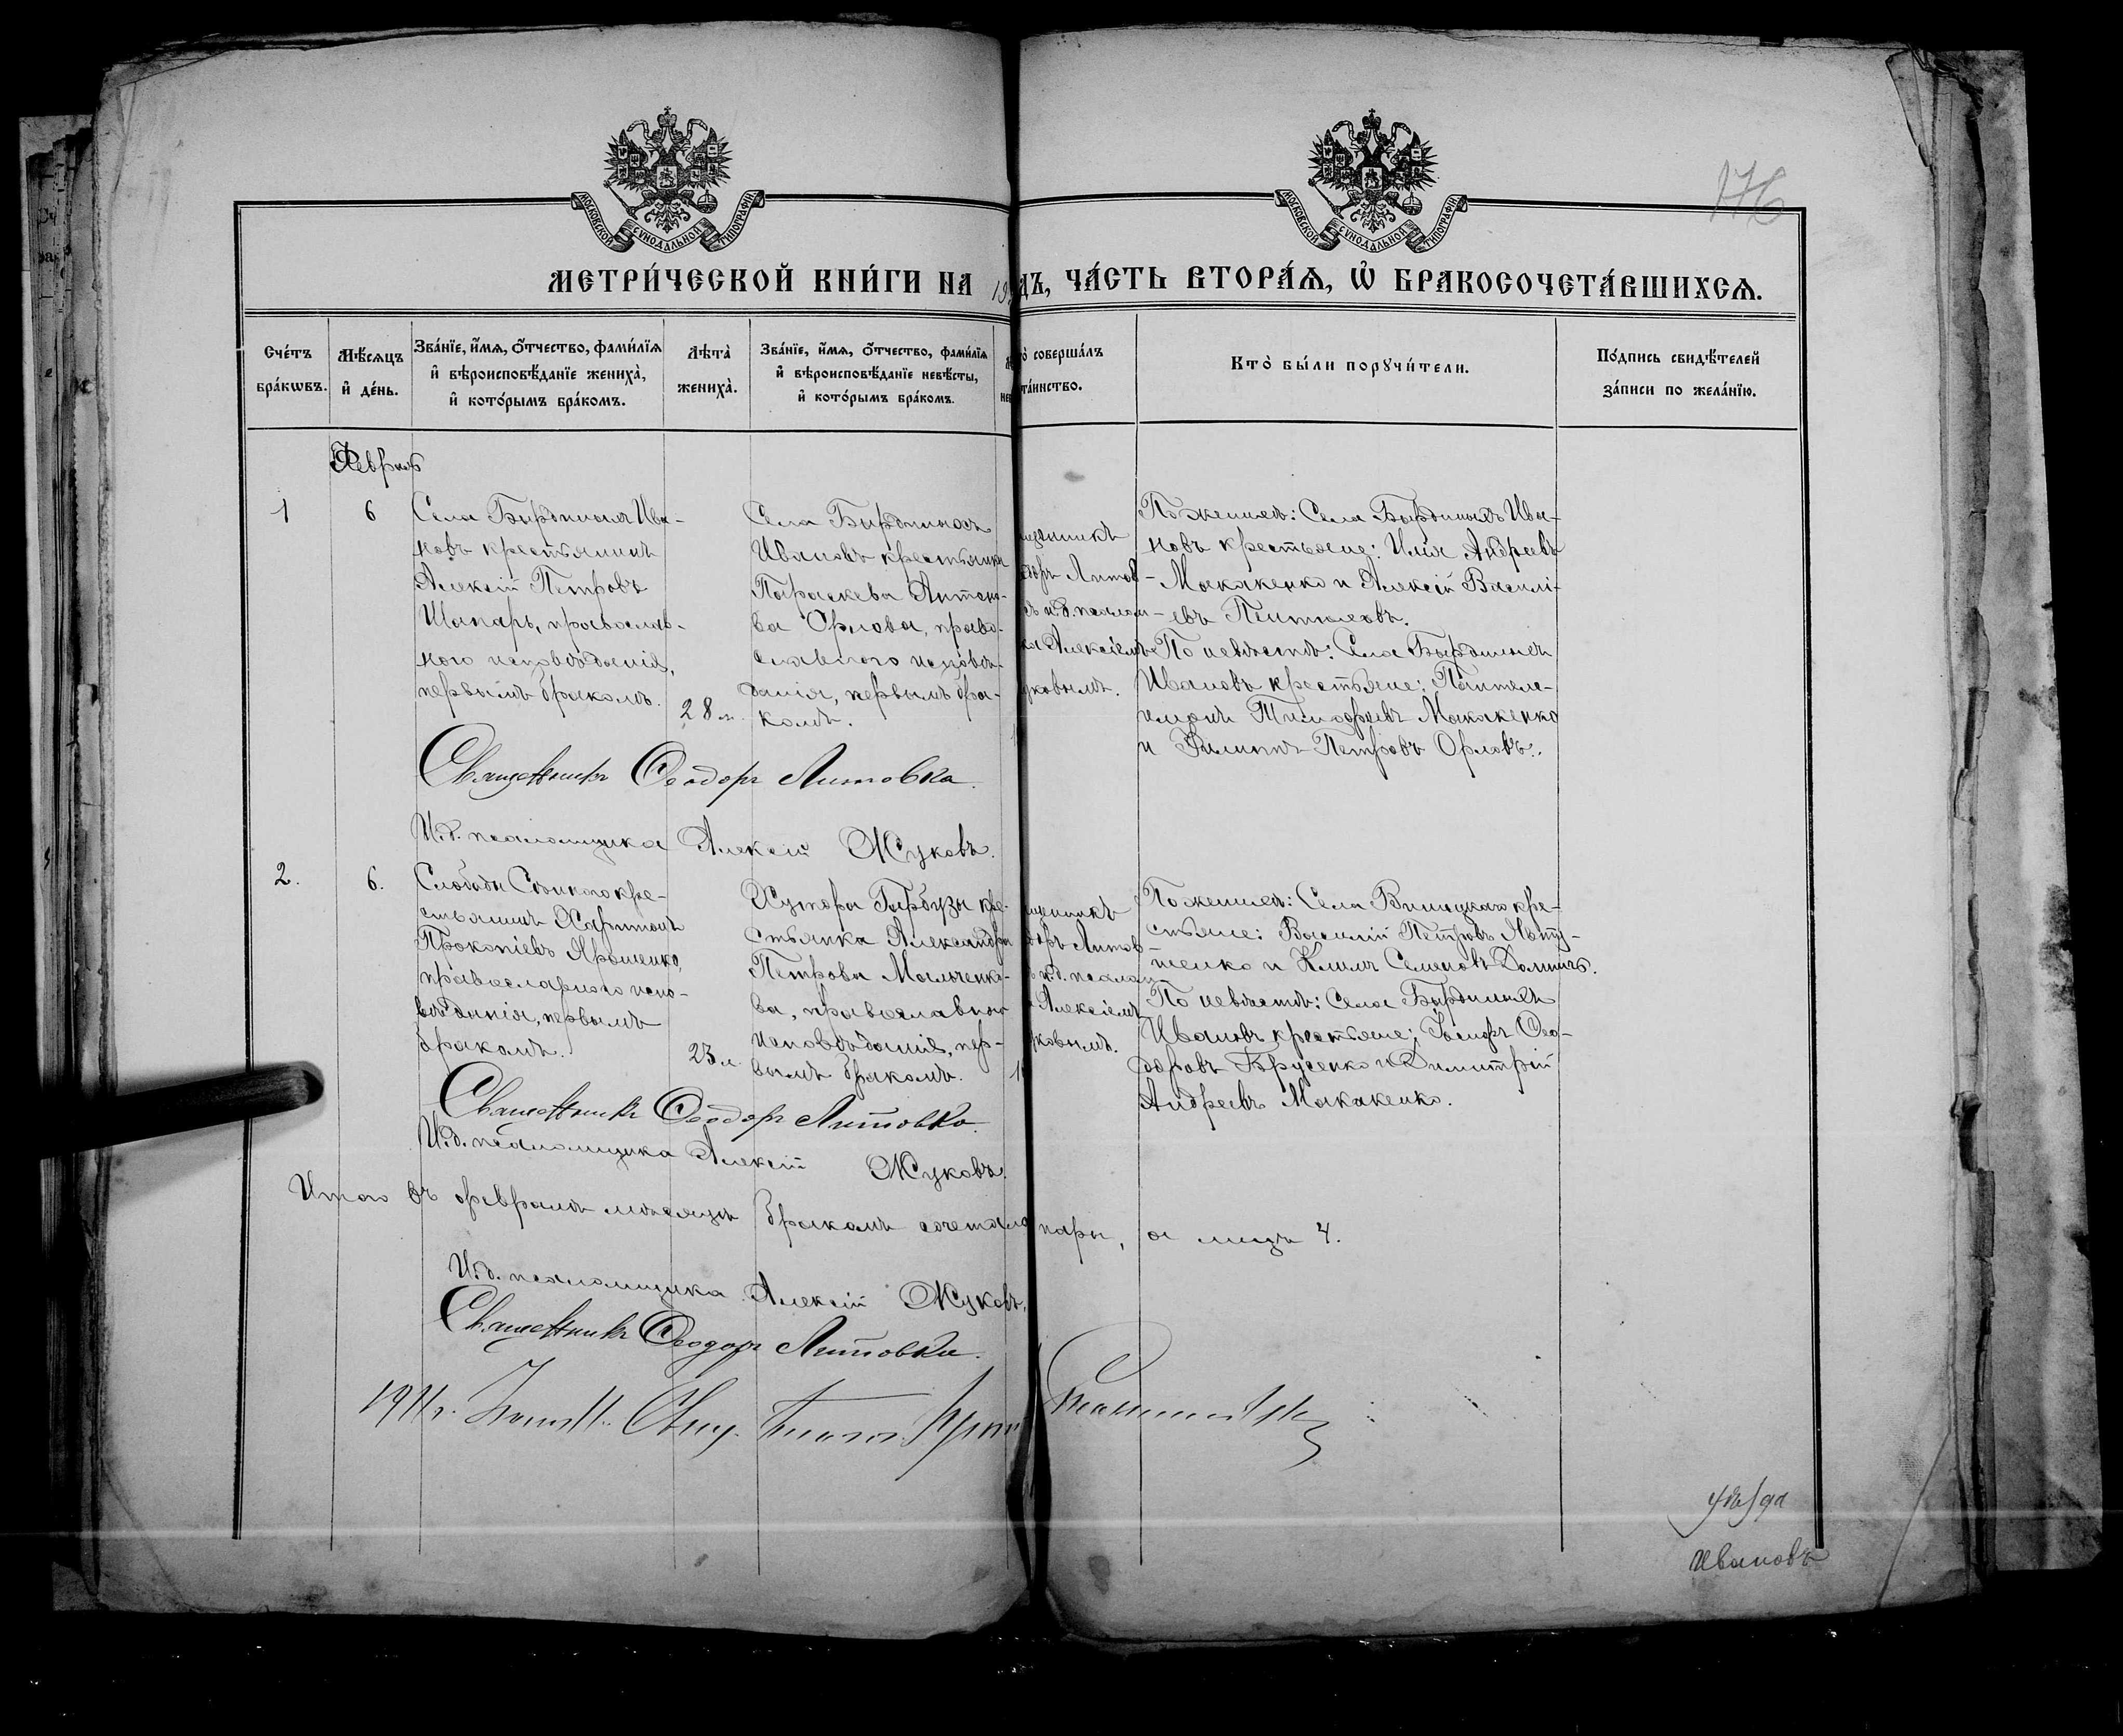 176
МОСКОВСКОЙ СѴНОДАЛЬНОЙ ТИПОГРАФІИ
МОСКОВСКОЙ СѴНОДАЛЬНОЙ ТИПОГРАФІИ
МЕТРИ́ЧЕСКОЙ КНИ́ГИ НА 19
ДЪ, ЧА́СТЬ ВТОРА́Я, Ѡ҆ БРАКОСОЧЕТА́ВШИХСЯ.
Сче́тъ бра́кωвъ.
Мѣ́сяцъ и҆ де́нь.
Зва́нїе, и҆́мя, ѻ҆́тчество, фами́лїя
и҆ вѣроисповѣ́данїе жениха̀,
и҆ кото́рымъ бра́комъ.
Лѣта̀ жениха̀.
Зва́нїе, и҆́мя, ѻ҆́тчество, фами́лїя
и҆ вѣроисповѣ́данїе невѣ́сты,
и҆ кото́рымъ бра́комъ.
о̀ соверша́лъ
та́инство.
Кто̀ бы́ли порꙋчи́тели.
По́дпись свидѣ́телей
за́писи по жела́нїю.
Феврал
1
6
Села Бырдиныхъ Ива-
новъ крестьянинъ
Алексій Петровъ
Шапарь, православ-
ного исповѣданія,
первымъ бракомъ.
28 л.
Села Бырдиныхъ
Ивановъ крестьянка
Параскева Антоно-
ва Орлова, право-
славного исповѣ-
данія, первымъ бра-
комъ.
щенникъ
одоръ Литов-
ъ и.д. псалом-
ка Алексіемъ
уковымъ.
По женихѣ: Села Бырдиныхъ Ива-
новъ крестьяне: Илія Андреевъ
Макакенко и Алексій Василі-
евъ
По невѣстѣ: Села Бырдиныхъ
Ивановъ крестьяне: Пантеле-
имонъ Тимофеевъ Макакенко
и Филиппъ Петровъ Орловъ.
Священникъ Ѳеодоръ Литовка.
И.д. псаломщика Алексій Жуковъ.
2.
6.
Слободы кре-
стьянинъ Харитонъ
Прокопіевъ Ярошенко,
православного испо-
вѣданія, первымъ
бракомъ.
23 л.
Хутора Гарбузы кре-
стьянка Александра
Петрова Мальченко-
ва, православного
исповѣданія, пер-
вымъ бракомъ.
щенникъ
доръ Литов-
ъ и.д. псалом-
Алексіемъ
ковымъ.
По женихѣ: Села кре-
стьяне: Василій Петровъ
и Климъ Семеновъ
По невѣстѣ: Села Бырдиныхъ
Ивановъ крестьяне: Іосифъ Ѳео-
доровъ Брусенко и Димитрій
Андреевъ Макакенко.
Священникъ Ѳеодоръ Литовка.
И.д. псаломщика Алексій Жуковъ.
Итого въ февралѣ мѣсяцѣ бракомъ сочетало пары, а лицъ 4.
И.д. псаломщика Алексій Жуковъ.
Священникъ Ѳеодоръ Литовка.
1911г.
Ивановъ